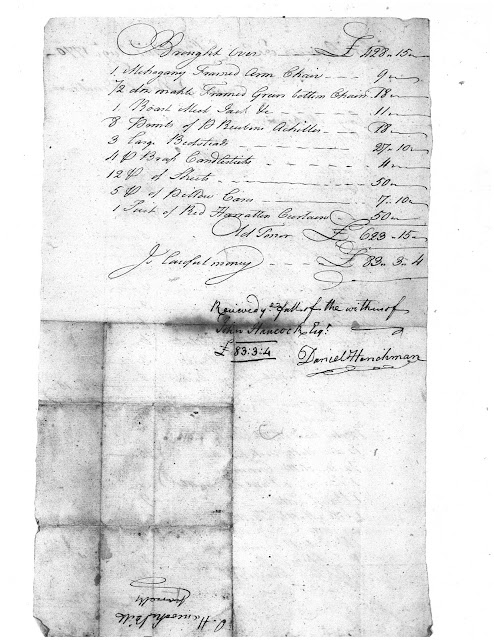 Brought Over £ 428 „ 15 „
1 Mehogany Framed Arm Chair 9 „
1/2 doz mahh Framed Green bottom Chairs 18 „
1 Roast Meet Jack &c 11 „
8 of P Rubens Achilles 18 „
3 Large Bedsteads 27 „ 10 „
4 P Brass Candlesticks 4 „
12 P of Sheets 50 „
5 P of Pillow Cases 7 „ 10 „
1 Suit of Red Harratten Curtains 50 „
Old Tenor £ 623 „ 15 „
Is Lawful money £ 83 „ 3 „ 4
Received ye full of the within of
John Hancock Esqr
£ 83:3:4 Daniel Henchman
Hancock Bill